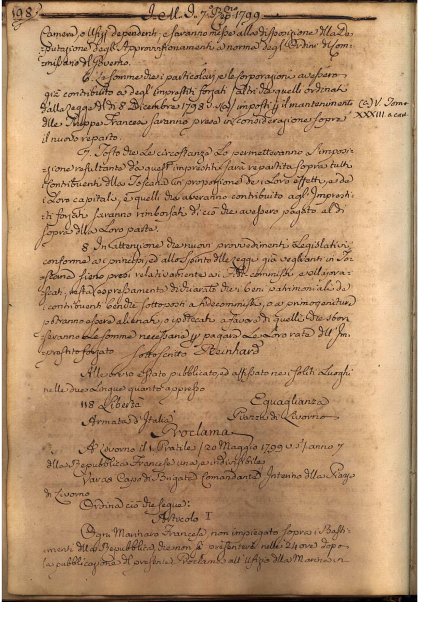 198
J. M. J. 7bre 1799
Camera, o Ufizj dependenti, e saranno messe alla disposizione della De
putazione degli Approvisionamenti a norma degl'Ordini di Com
missario del Governo.
6. Le somme che i particolari, e le corporazioni avessero
già contribuito a degl'imprestiti forzati, altri da quelli ordinati
dalla legge del dì 8 Dicembre 1798 (a) imposti per il mantenimento
delle Truppe Francesi saranno prese in considerazione sopra
il nuovo reparto.
(a) V. Tomo
XXXIII a car.
7. Tosto che le circostanze lo permetteranno l'imposi
zione resultante da quest'imprestiti sarà repartita sopra tutti
i contribuenti della Toscana in proporzione de i Loro effetti, e de
i Loro capitali, e quelli che averanno contribuito agl'Impresti
ti forzati saranno rimborsati di ciò che avessero pagato al di
sopra della Loro parte.
8. In attenzione de nuovi provvedimenti Legislativi
conforme a i principj, ed allo spirito delle Leggi già veglianti in To
scana, sieno presi relativamente a i Fidecommissi,
fino a
contribuenti benchè sottoposti a Fidecommissi, o a primogeniture
potranno essere alienati, o ipotecati a favore di quelli che sbor
seranno Le somme necessarie per pagare La Loro rata dell'Im
prestito forzato. Sottoscritto Reinhard
Alle ore è stato pubblicato, ed affissato ne i soliti Luoghi
nelle due Lingue quanto appresso
118 Libertà Eguaglianza
Armata d'Italia Piazza di Livorno
Proclama
A Livorno il 1. Pratile (20 Maggio 1799 v. s.) anno 7
della Repubblica Francese una, e indivisibile
Varas Capo di Brigata Comandante Interino della Piazza
di Livorno
Ordina ciò che segue:
Articolo I
Ogni Marinaro Francese, non impiegato sopra i Basti
menti della Repubblica, che non si presenterà nelle 24 ore dopo
la pubblicazione del presente Proclama all'Ufizio della Marina in